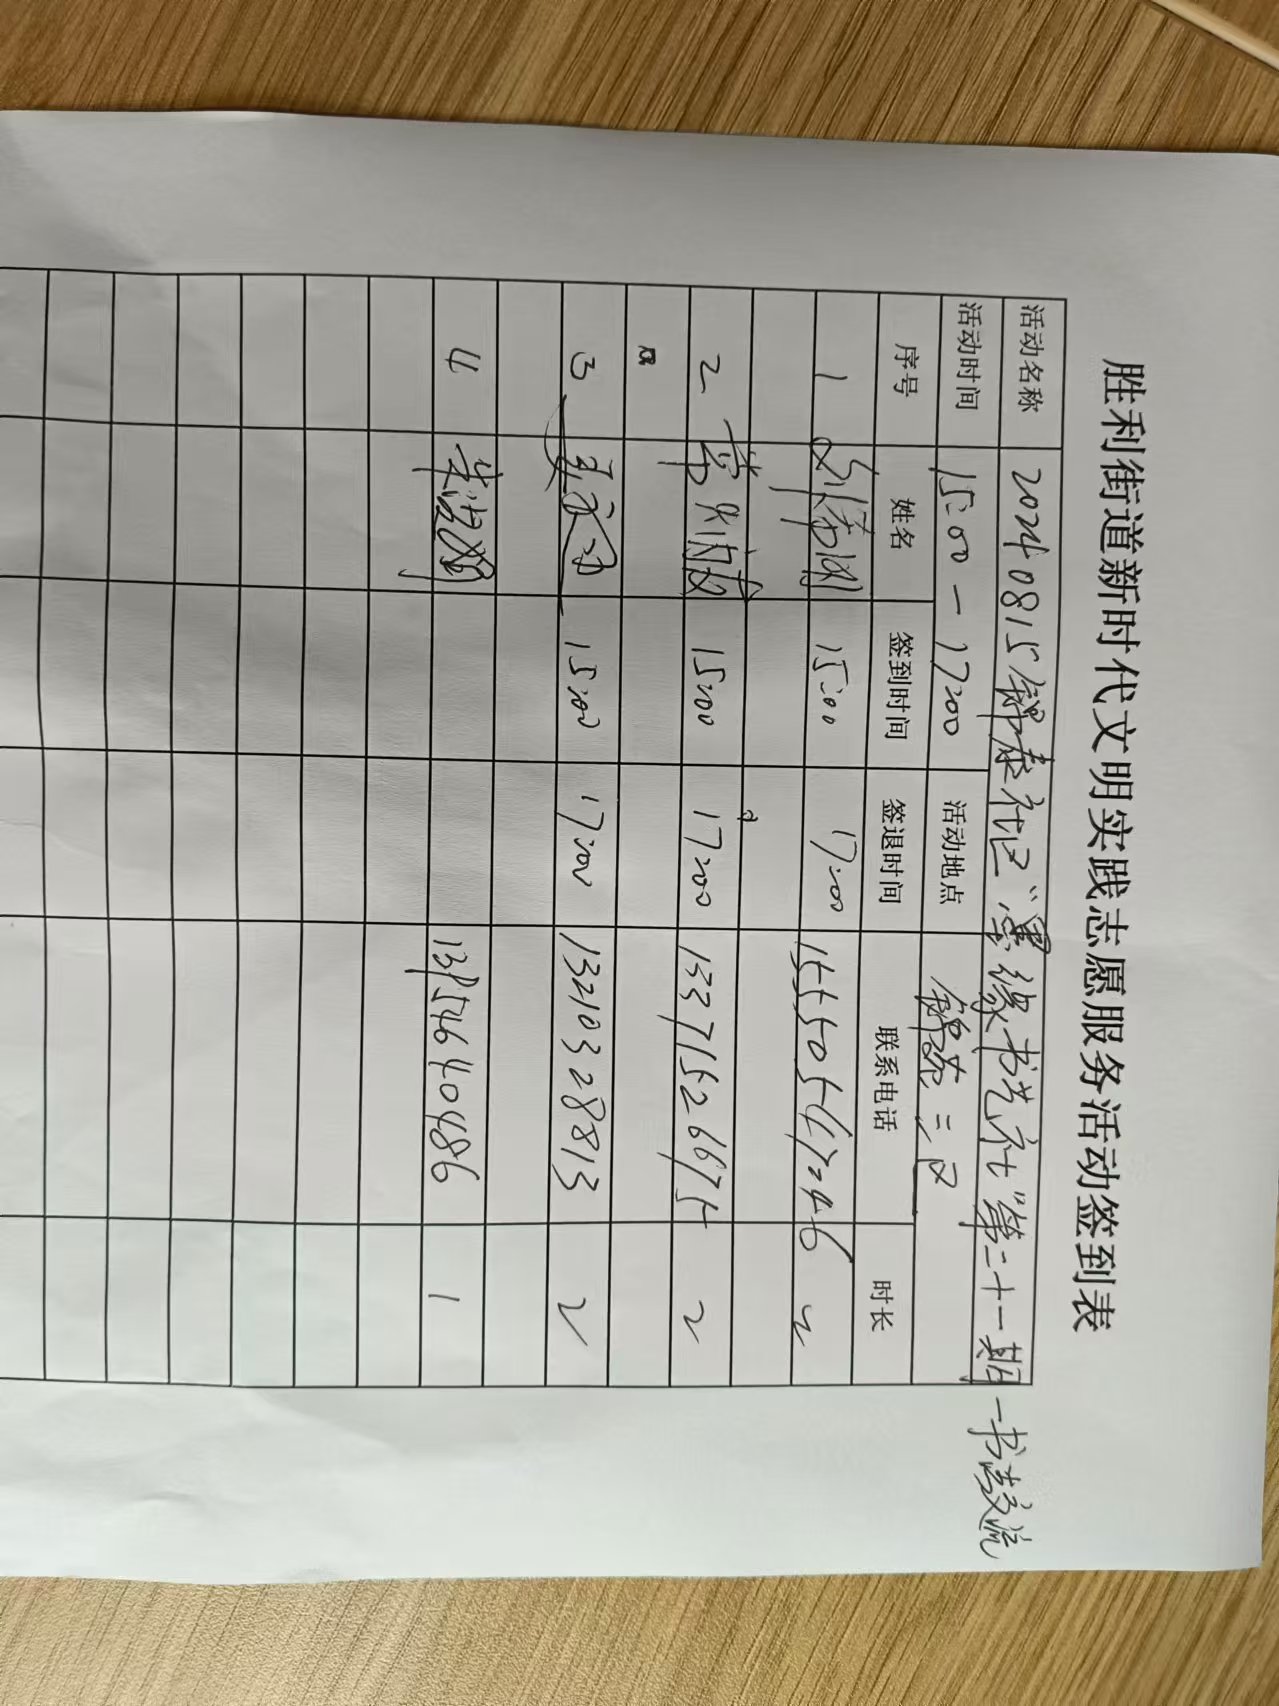 胜利街道新时代文明实践志愿服务活动签到表
活动名称 20240815锦泰社区“墨缘书艺社”第二十一期-书法交流
活动时间 15:00-17:00 活动地点 锦苑二区
序号 姓名 签到时间 签退时间 联系电话 时长
1 15:00 17:00 15550547246 2
2 15:00 17:00 13371526675 2
3 15:00 17:00 13210328813 2
4 13954640486 1